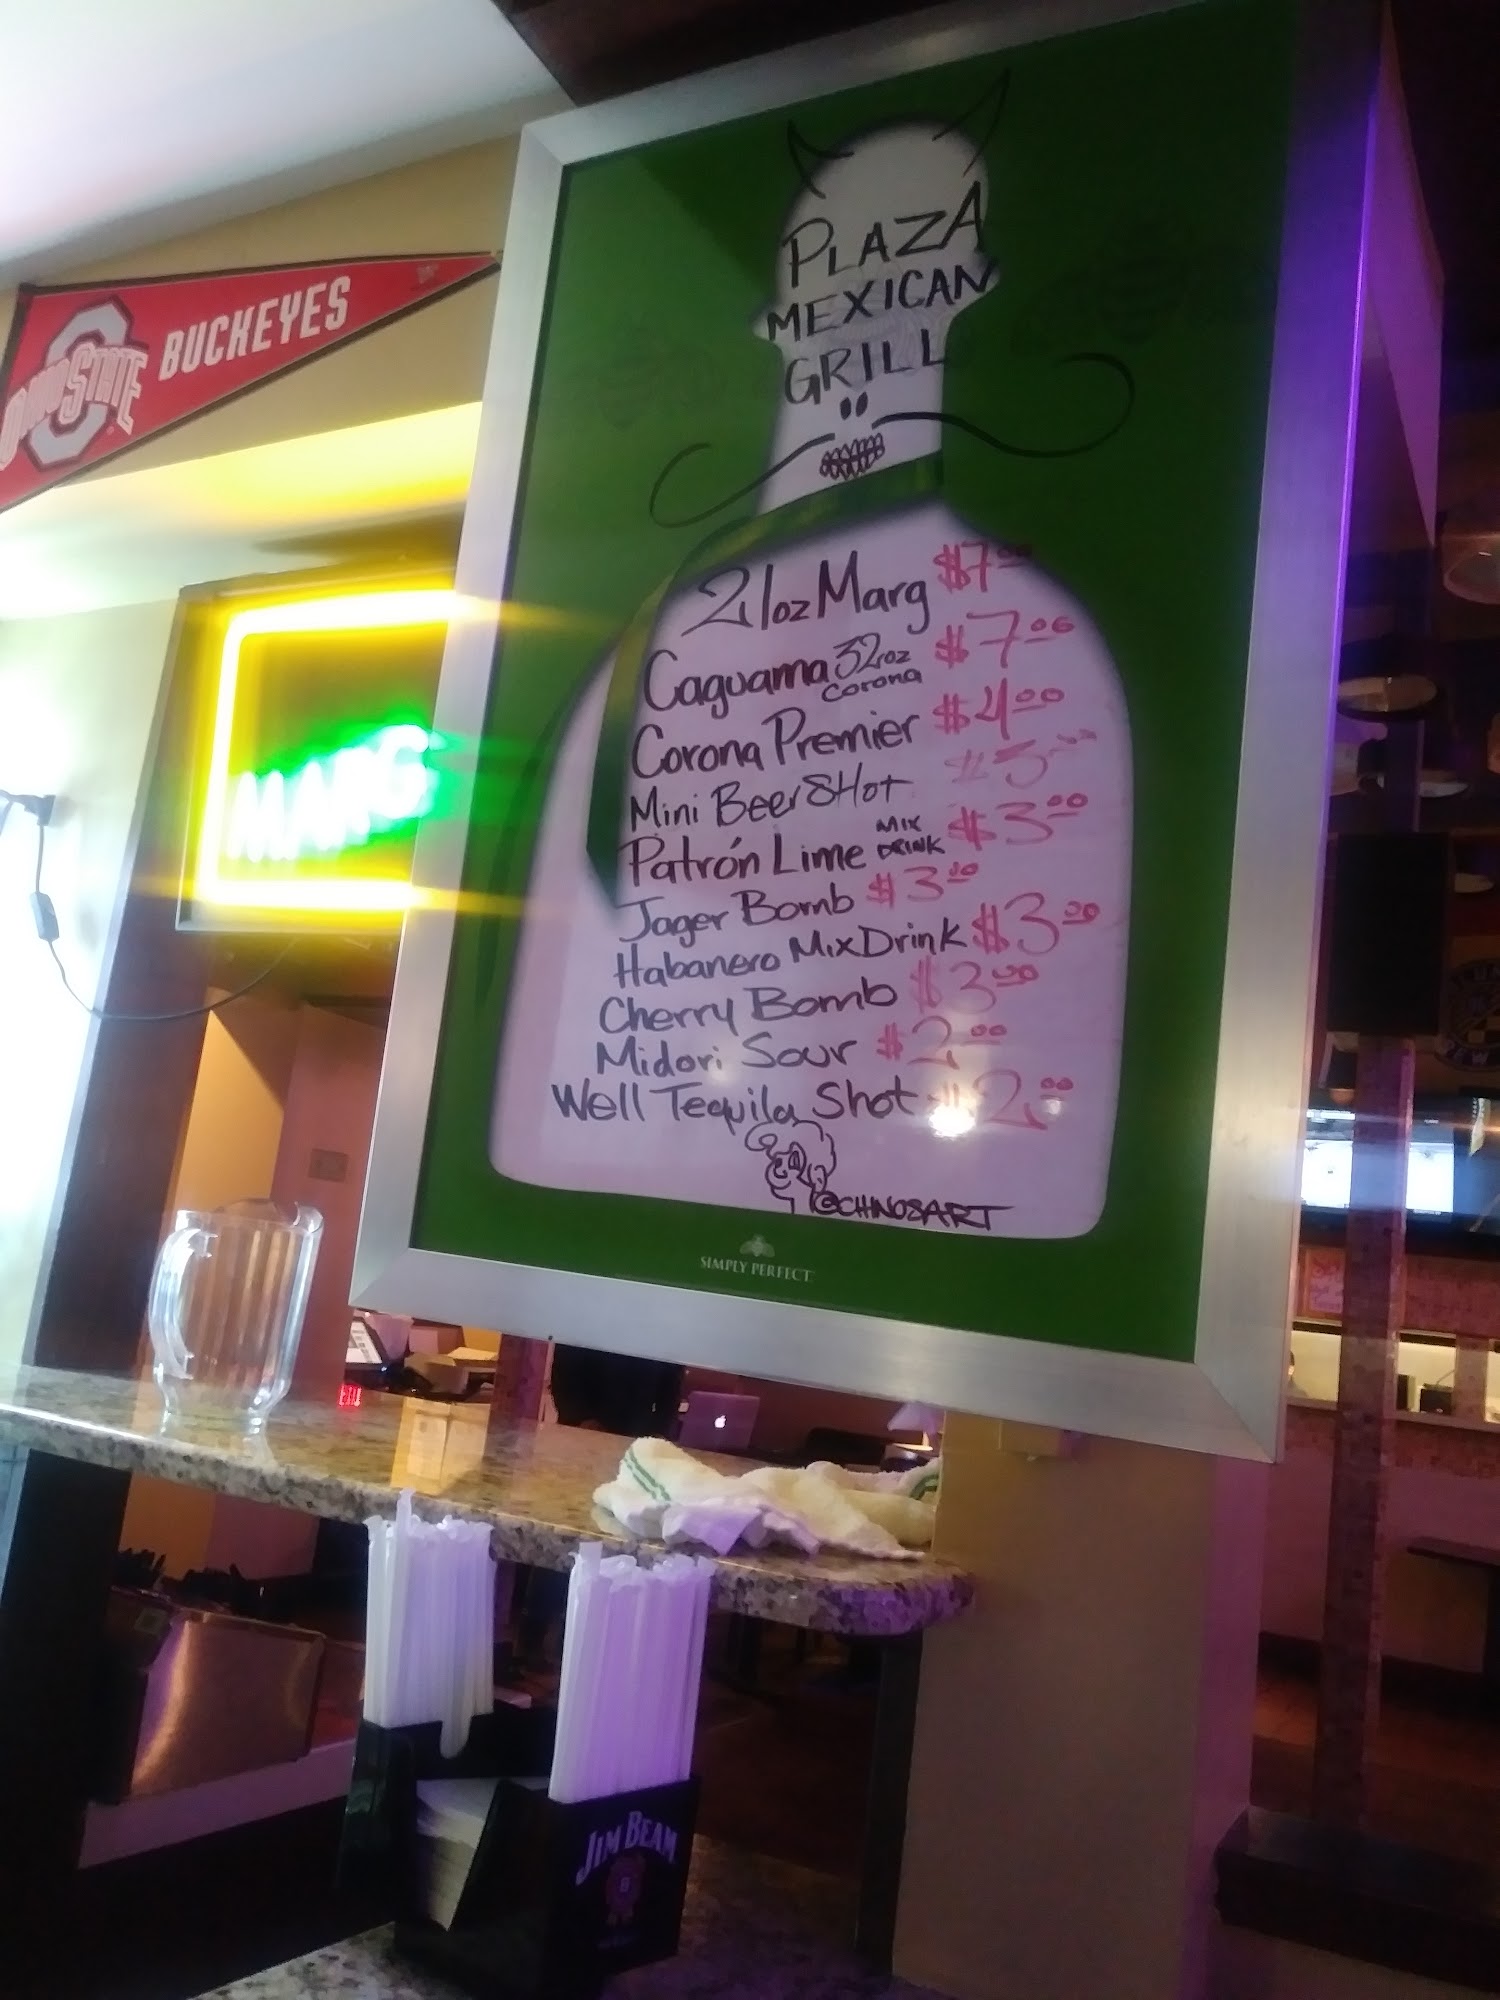 PLAZA
MEXICAN
GRILL
OHIO STATE BUCKEYES
MARG
21oz Marg $7.00
Caguama 32oz Corona $7.00
Corona Premier $4.00
Mini Beer Shot $3.00
Patrón Lime MIX DRINK $3.00
Jager Bomb $3.00
Habanero Mix Drink $3.00
Cherry Bomb $3.00
Midori Sour $2.00
Well Tequila Shot $2.00
@CHINOSART
SIMPLY PERFECT
JIM BEAM